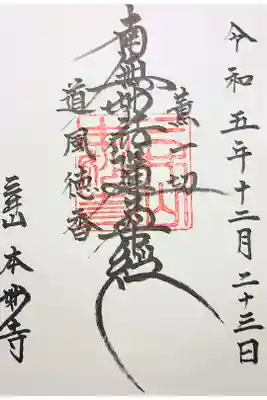 令和五年十二月二十三日
薫一切
南無妙法蓮華經
道風徳香
山 本妙寺